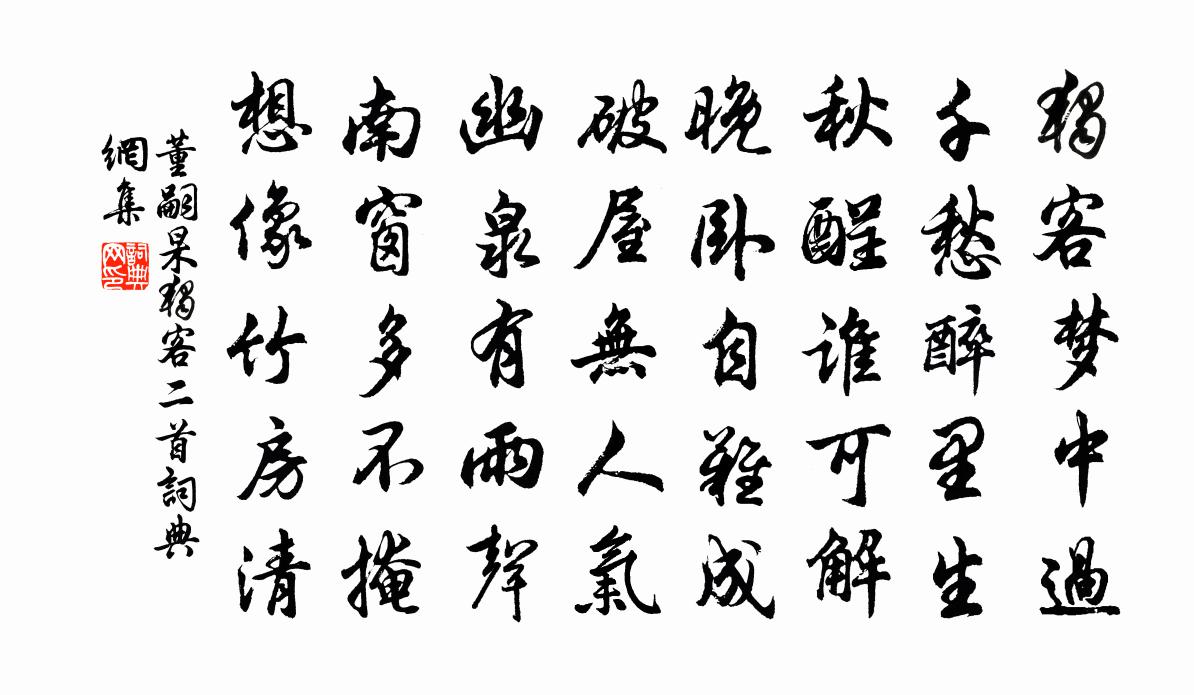 獨客梦中過
千愁醉里生
秋醒誰可解
晚卧自難成
破屋無人氣
幽泉有雨聲
南窗多不掩
想像竹房清
董嗣杲獨客二首詞典
網集
詞典
网印